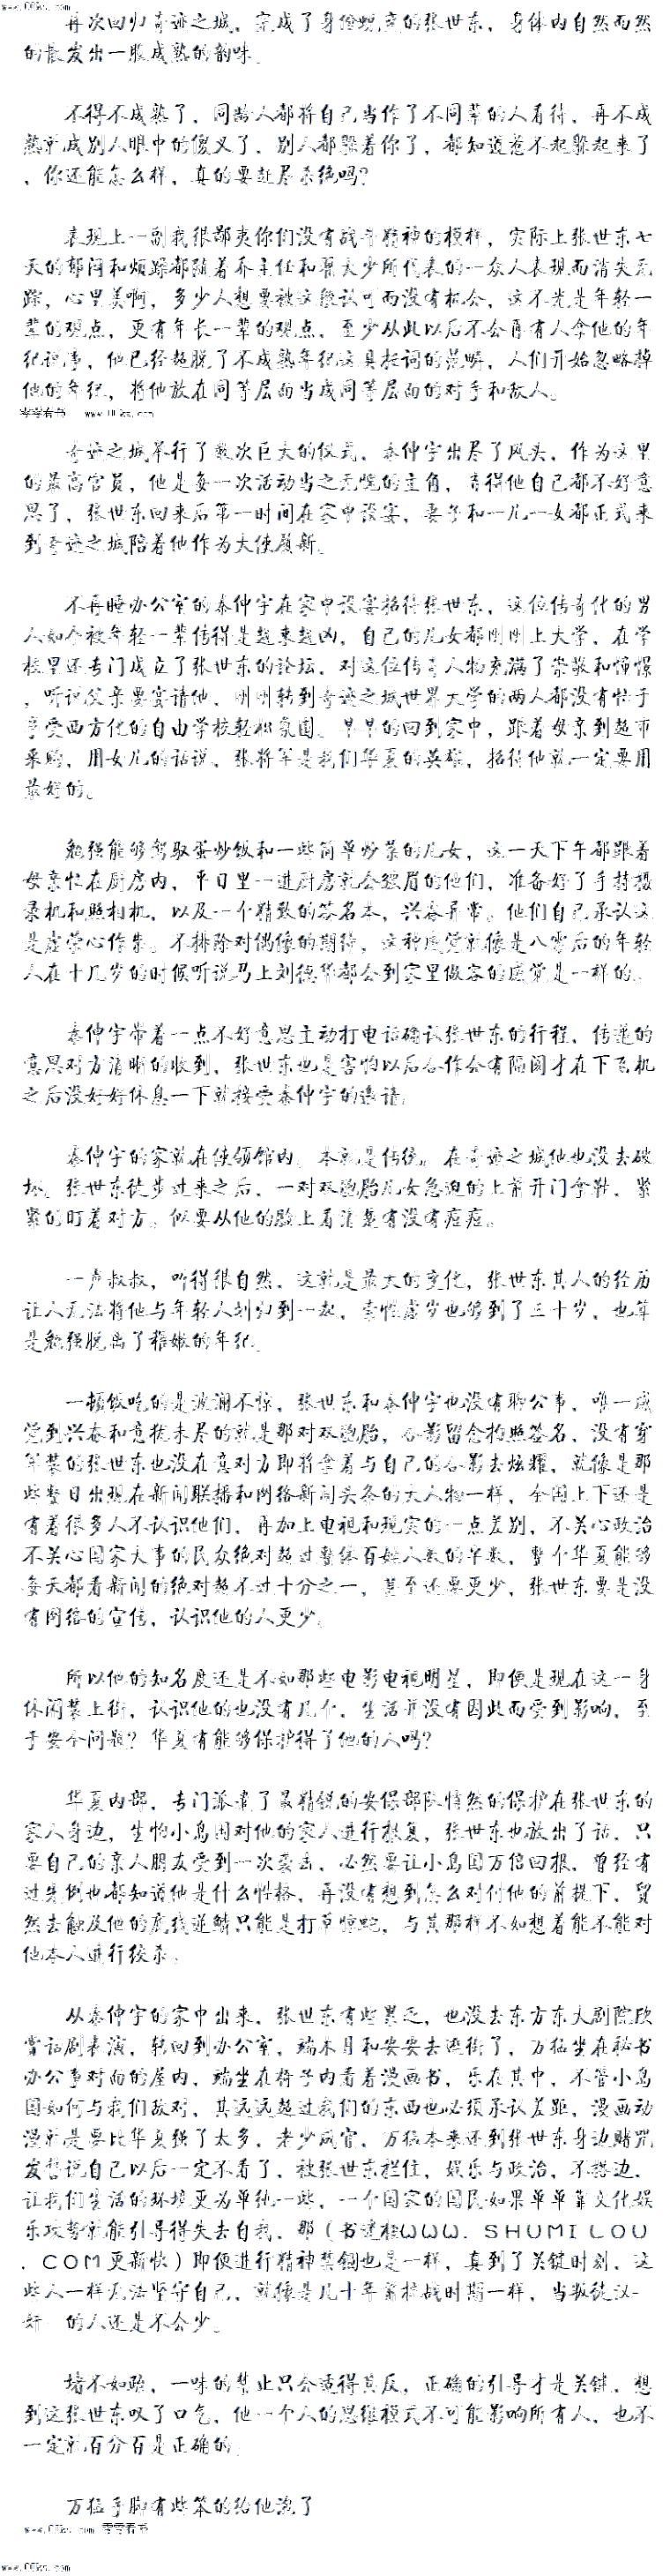 www.00ks.com
再次回归奇迹之城，完成了身份蜕变的张世东，身体内自然而然
的散发出一股成熟的韵味。
不得不成熟了，同龄人都将自己当作了不同辈的人看待，再不成
熟就成别人眼中的傻叉了，别人都躲着你了，都知道惹不起躲起来了
，你还能怎么样，真的要赶尽杀绝吗？
表现上一副我很鄙夷你们没有战斗精神的模样，实际上张世东七
天的郁闷和烦躁都随着乔主任和翟大少所代表的一众人表现而消失无
踪，心里美啊，多少人想要被这般认可而没有机会，这不光是年轻一
辈的观点，更有年长一辈的观点，至少从此以后不会再有人拿他的年
纪说事，他已经超脱了不成熟年纪这具核词的范畴，人们开始忽略掉
他的年纪，将他放在同等层面当成同等层面的对手和敌人。
零零看书 www.00ks.com
奇迹之城举行了数次巨大的仪式，秦仲宇出尽了风头，作为这里
的最高官员，他是每一次活动当之无愧的主角，弄得他自己都不好意
思了，张世东回来后第一时间在家中设宴，妻子和一儿一女都正式来
到奇迹之城陪着他作为大使履新。
不再睡办公室的秦仲宇在家中设宴招待张世东，这位传奇化的男
人如今被年轻一辈传得是越来越凶，自己的儿女都刚刚上大学，在学
校里还专门成立了张世东的论坛，对这位传奇人物充满了崇敬和憧憬
，听说父亲要宴请他，刚刚转到奇迹之城世界大学的两人都没有忙于
享受西方化的自由学校轻松氛围，早早的回到家中，跟着母亲到超市
采购，用女儿的话说，张将军是我们华夏的英雄，招待他就一定要用
最好的。
勉强能够驾驭蛋炒饭和一些简单炒菜的儿女，这一天下午都跟着
母亲忙在厨房内，平日里一进厨房就会皱眉的他们，准备好了手持摄
录机和照相机，以及一个精致的签名本，兴奋异常。他们自己承认这
是虚荣心作祟。不排除对偶像的期待，这种感觉就像是八零后的年轻
人在十几岁的时候听说马上刘德华都会到家里做客的感觉是一样的。
秦仲宇带着一点不好意思主动打电话确认张世东的行程，传递的
意思对方清晰的收到，张世东也是害怕以后合作会有隔阂才在下飞机
之后没好好休息一下就接受秦仲宇的邀请。
秦仲宇的家就在使领馆内。本就是传统。在奇迹之城他也没去破
坏。张世东徒步过来之后，一对双胞胎儿女急迫的上前开门拿鞋，紧
紧的盯着对方。似要从他的脸上看清楚有没有痘痘。
一声叔叔，听得很自然，这就是最大的变化，张世东其人的经历
让人无法将他与年轻人划归到一起，索性虚岁也够到了三十岁，也算
是勉强脱离了稚嫩的年纪。
一顿饭吃的是波澜不惊，张世东和秦仲宇也没有聊公事，唯一感
觉到兴奋和意犹未尽的就是那对双胞胎，合影留念拍照签名，没有穿
军装的张世东也没在意对方即将拿着与自己的合影去炫耀，就像是那
些整日出现在新闻联播和网络新闻头条的大人物一样，全国上下还是
有着很多人不认识他们，再加上电视和现实的一点差别，不关心政治
不关心国家大事的民众绝对超过整体百姓人数的半数，整个华夏能够
每天都看新闻的绝对超不过十分之一，甚至还要更少，张世东要是没
有网络的宣传，认识他的人更少。
所以他的知名度还是不如那些电影电视明星，即便是现在这一身
休闲装上街，认识他的也没有几个，生活并没有因此而受到影响，至
于安全问题？华夏有能够保护得了他的人吗？
华夏内部，专门派遣了最精锐的安保部队悄然的保护在张世东的
家人身边，生怕小岛国对他的家人进行报复，张世东也放出了话，只
要自己的亲人朋友受到一次袭击，必然要让小岛国万倍回报，曾经有
过先例也都知道他是什么性格，再没有想到怎么对付他的前提下，贸
然去触及他的底线逆鳞只能是打草惊蛇，与其那样不如想着能不能对
他本人进行绞杀。
从秦仲宇的家中出来，张世东有些累乏，也没去东方东大剧院欣
赏话剧表演，转回到办公室，端木月和安安去逛街了，万猛坐在秘书
办公事对面的屋内，端坐在椅子内看着漫画书，乐在其中，不管小岛
国如何与我们敌对，其远远超过我们的东西也必须承认差距，漫画动
漫就是要比华夏强了太多，老少咸宜，万猛本来还到张世东身边赌咒
发誓说自己以后一定不看了，被张世东拦住，娱乐与政治，不搭边，
让我们生活的环境更为单纯一些，一个国家的国民如果单单靠文化娱
乐攻势就能引导得失去自我，那（书谜楼WWW．SHUMILOU
．COM更新快）即便进行精神禁锢也是一样，真到了关键时刻，这
些人一样无法坚守自己，就像是几十年前抗战时期一样，当叛徒汉
奸 的人还是不会少。
堵不如疏，一味的禁止只会适得其反，正确的引导才是关键，想
到这张世东叹了口气，他一个人的思维模式不可能影响所有人，也不
一定就百分百是正确的。
万猛手脚有些笨的给他泡了
www.00ks.com 零零看书
www.00ks.com